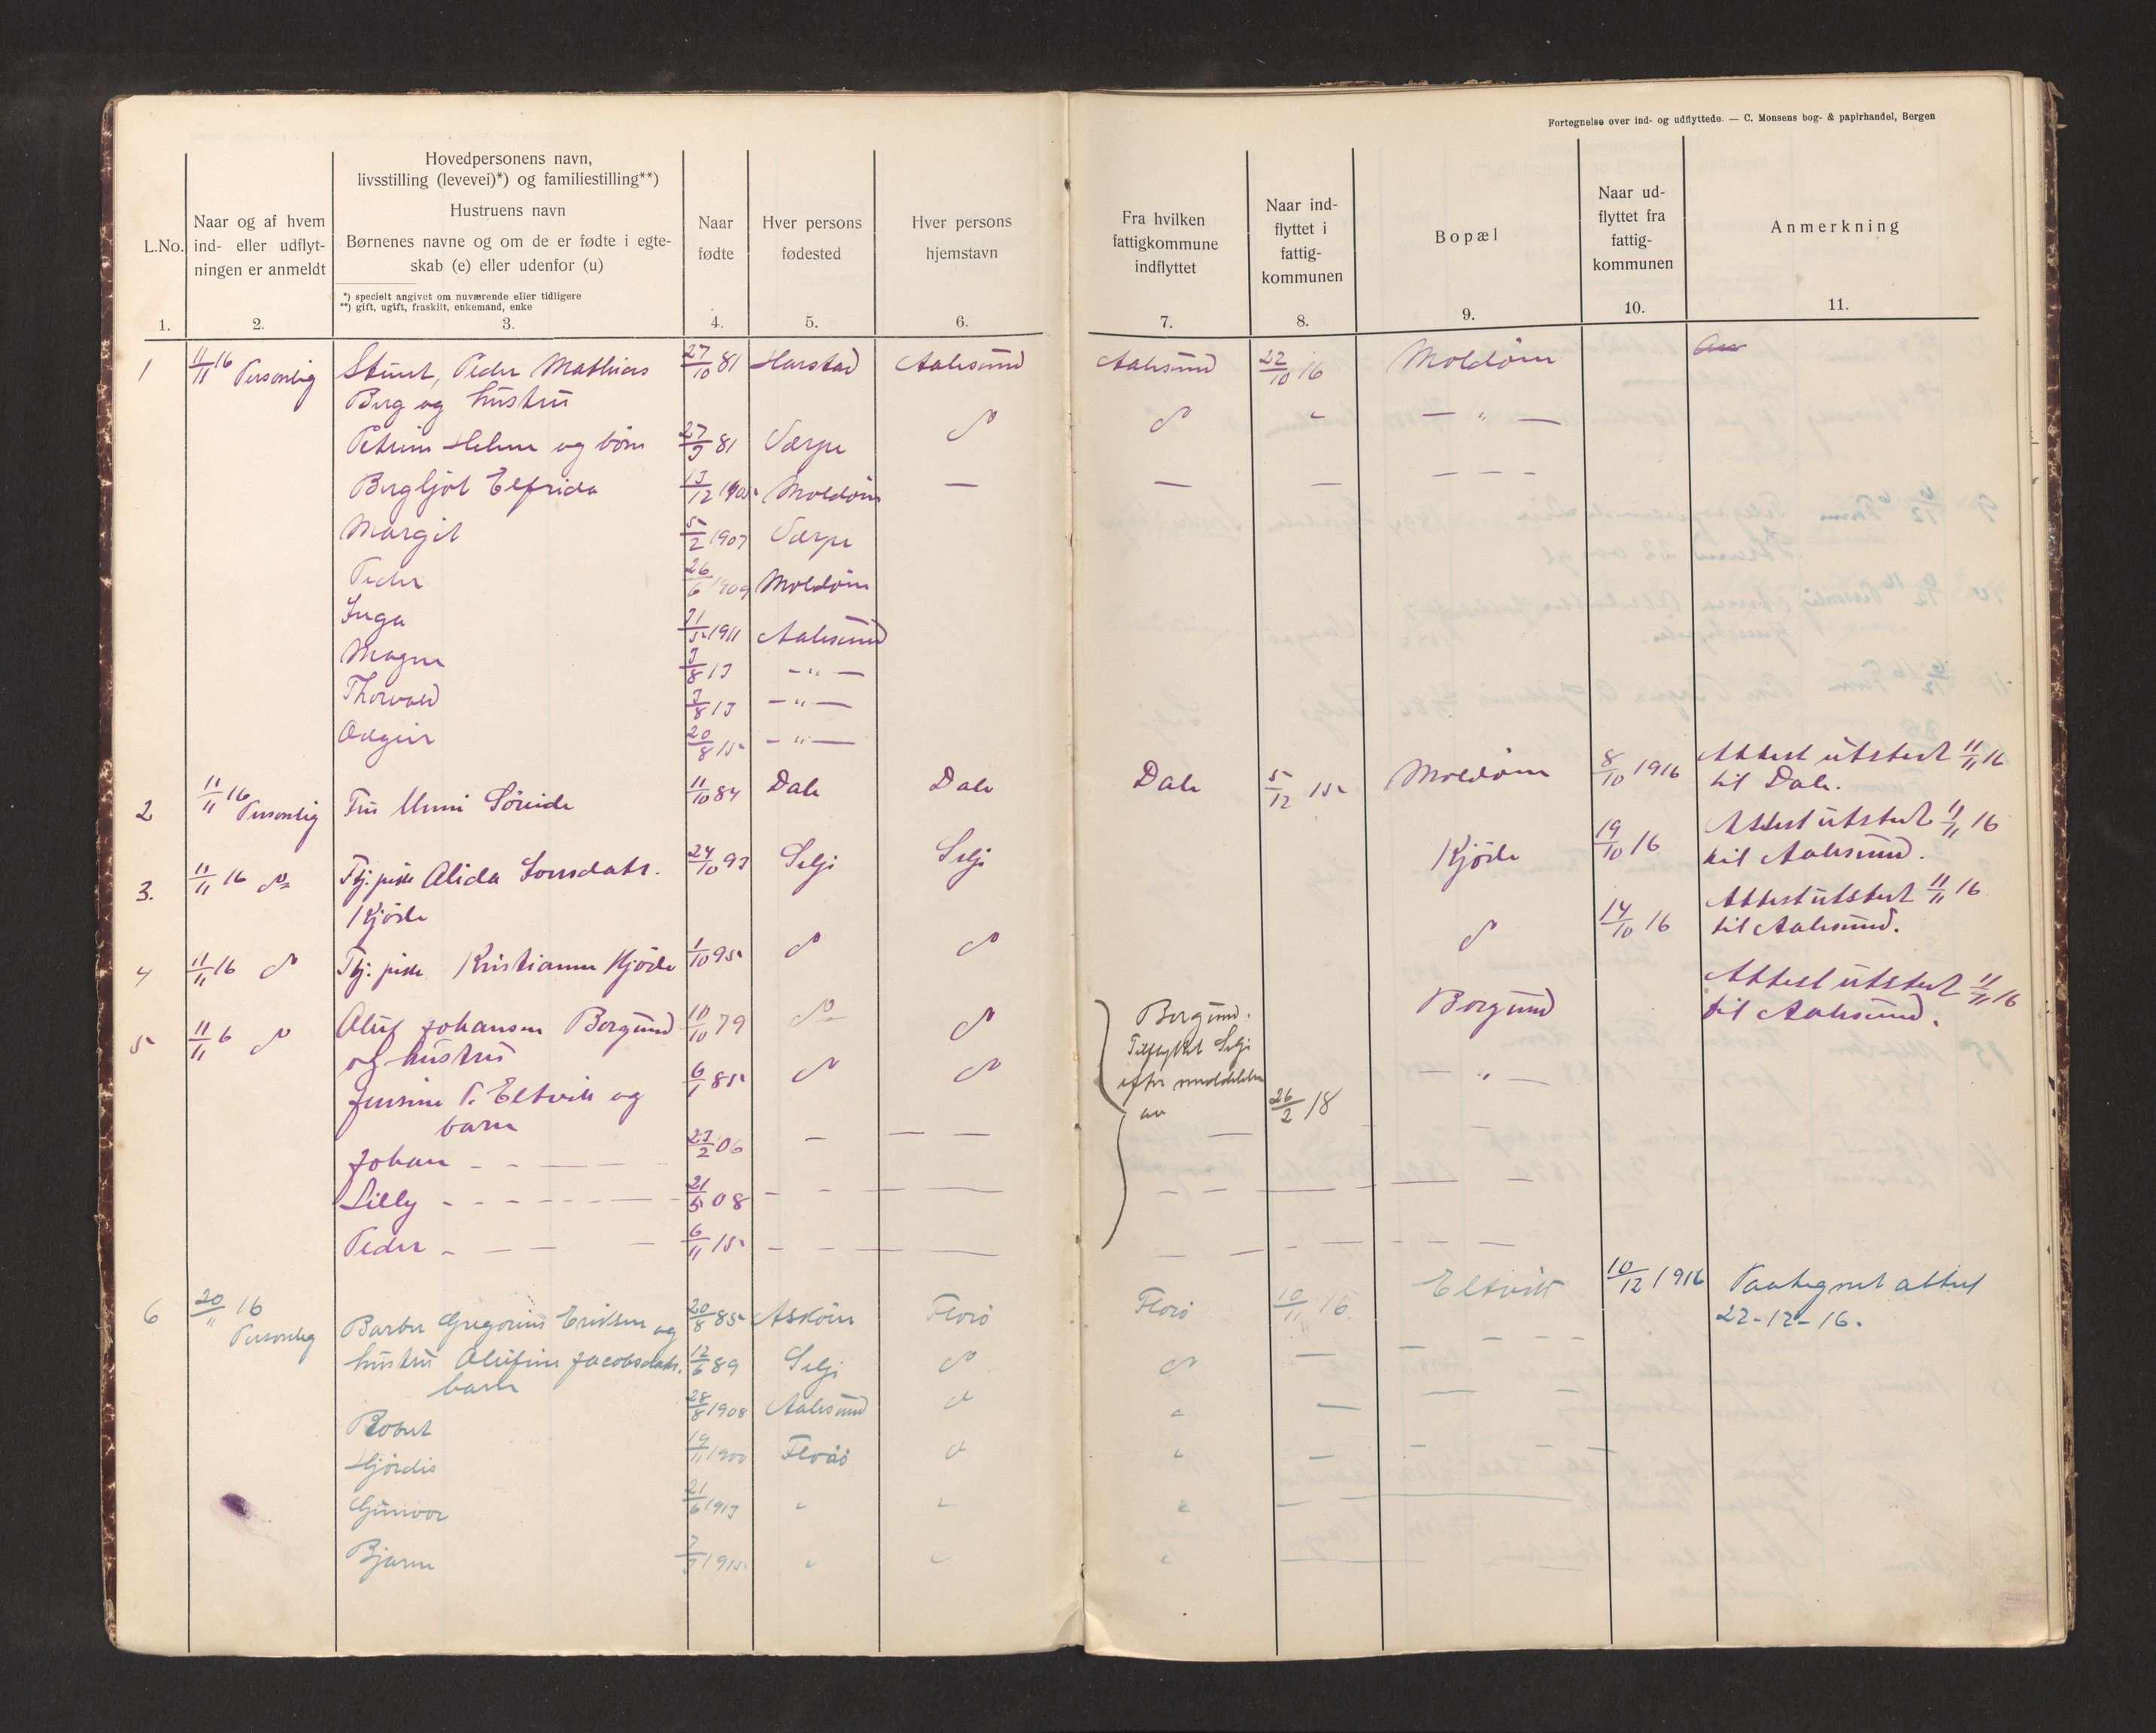 Fortegnelse over ind- og udflyttede. — C. Monsens bog- & papirhandel, Bergen
L.No.
1.
Naar og af hvem
ind- eller udflyt-
ningen er anmeldt
2.
Hovedpersonens navn,
livsstilling (levevei)*) og familiestilling**)
Hustruens navn
Børnenes navne og om de er fødte i egte-
skab (e) eller udenfor (u)
*) specielt angivet om nuværende eller tidligere
**) gift, ugift, fraskilt, enkemand, enke
3.
Naar
fødte
4.
Hver persons
fødested
5.
Hver persons
hjemstavn
6.
Fra hvilken
fattigkommune
indflyttet
7.
Naar ind-
flyttet i
fattig-
kommunen
8.
Bopæl
9.
Naar ud-
flyttet fra
fattig-
kommunen
10.
Anmerkning
11.
1 11/11 16 Personlig Peder Mathias 27/10 81 Harstad Aalesund Aalesund 22/10 16 Moldøen
Berg og hustru
Petrine Helene og børn 27/3 81 Værpe do do " — " —
Bergljot Elfrida 13/12 1905 Moldøen — — — — — —
Margit 5/2 1907 Værpe
Peder 26/6 1909 Moldøen
Inga 31/5 1911 Aalesund
Magne 3/8 13 — " —
Thorvald 3/8 13 — " —
Odgeir 20/8 15 — " —
2 11/11 16 Personlig Fru Unni Søreide 11/10 84 Dale Dale Dale 5/12 15 Moldøen 8/10 1916 Attest utstedt 11/11 16
til Dale.
3. 11/11 16 do Tj. pike Alida Larsdatr. 24/10 93 Selje Selje Kjøde 19/10 16 Attest utstedt 11/11 16
Kjøde til Aalesund.
4 11/11 16 do Tj. pike Kristianne Kjøde 1/10 95 do do do 14/10 16 Attest utstedt 11/11 16
til Aalesund.
5 11/11 6 do Oluf Johansen Borgund 10/10 79 do do Borgund. Borgund Attest utstedt 11/11 16
og hustru Tilflyttet Selje til Aalesund.
Jensine P. Eltvik og 6/1 85 do do efter meddelelse — " —
barn av 26/2 18
Johan — — — — 23/2 06 — — — — — —
Lilly — — — — 21/5 08 — — — — — — — — —
Peder — — — — 6/11 15 — — — — — — — — —
6 20/11 16 Personlig Barber Gregorius Eriksen og 20/8 85 Askøen Florø Florø 10/11 16 Eltvik 10/12 1916 Paategnet attest
22-12-16.
hustru Olufine Jacobsdatr. 12/6 89 Selje do do — — — — —
barn
Robert 28/8 1908 Aalesund do " — — —
Hjørdis 19/11 1900 Florø do " — — —
Gunvor 21/6 1913 " " " —
Bjarne 3/3 1915 " " " —